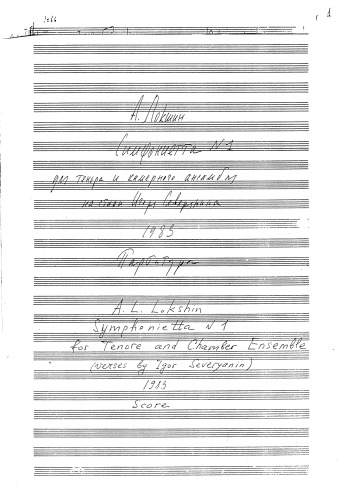 1
А. Локшин
Симфониетта N 1
для тенора и камерного ансамбля
на стихи Игоря Северянина
1983
Партитура
A. L. Lokshin
Symphonietta N 1
for Tenore and Chamber Ensemble
(verses by Igor Severyanin)
1983
Score